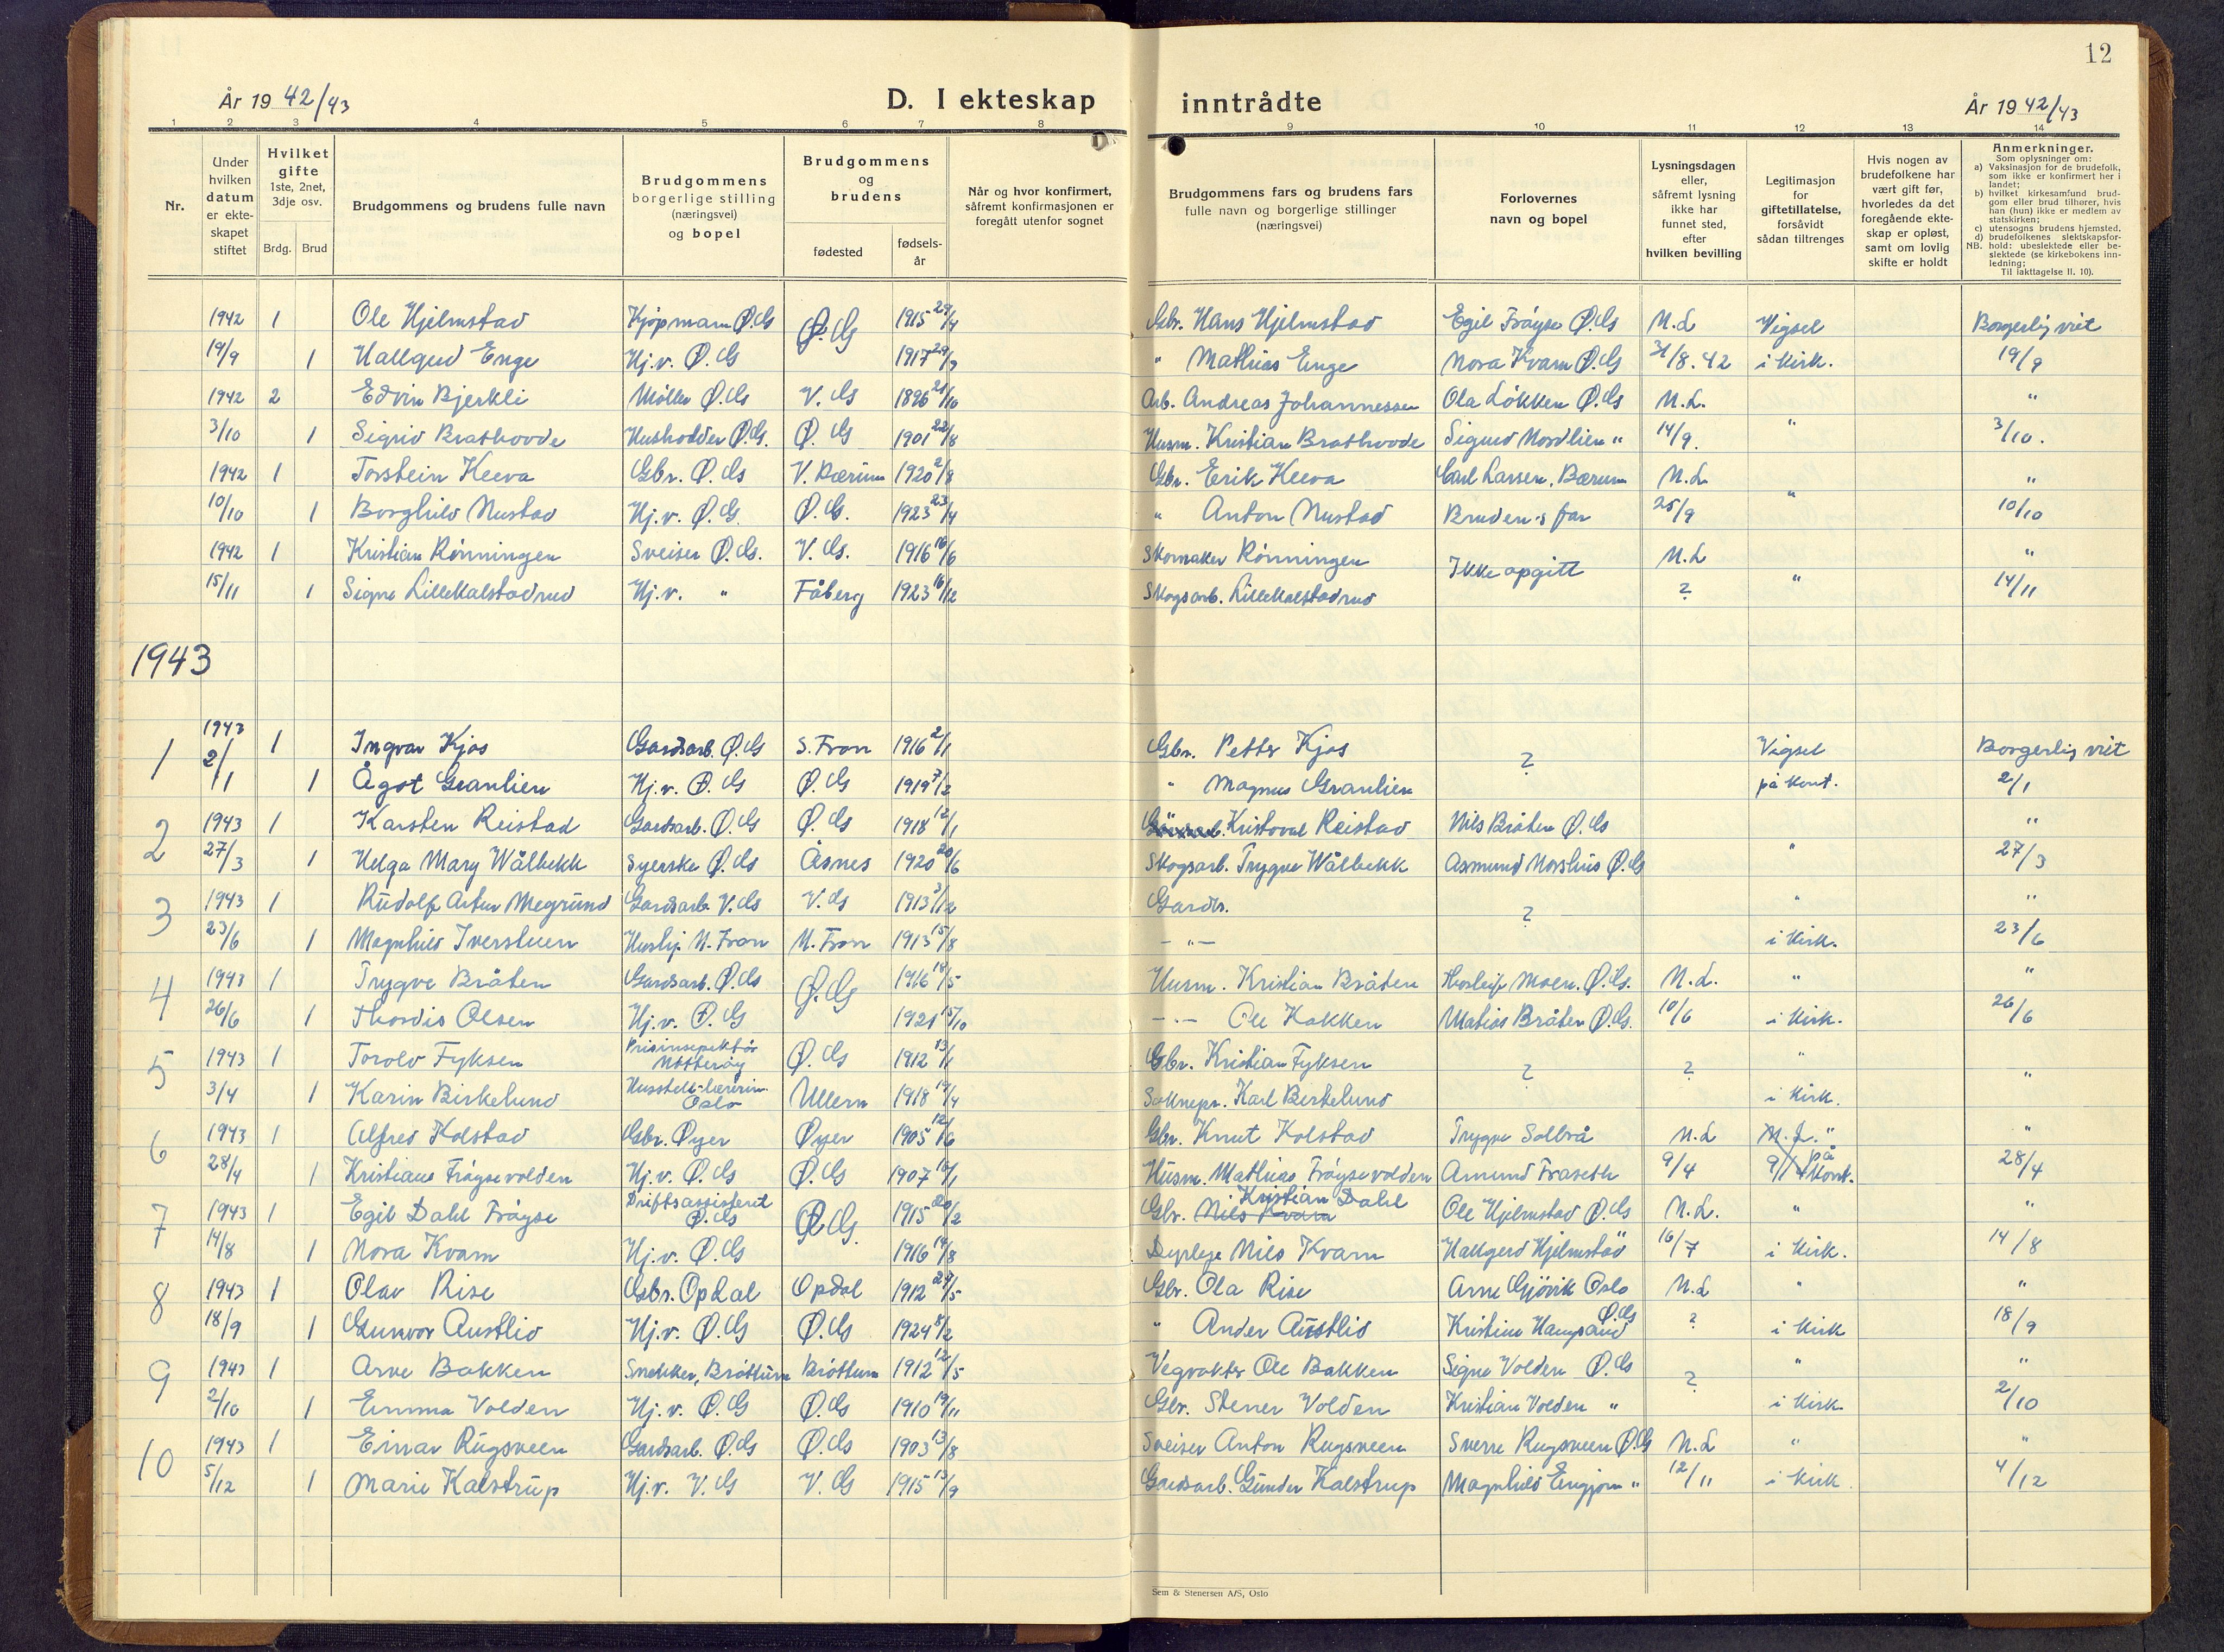 12
År 19 42/43
D. I ekteskap
inntrådte
År 19 42/43
1 2 3 4 5 6 7 8 9 10 11 12 13 14
Nr.
Under hvilken datum er ekteskapet stiftet
Hvilket gifte 1ste, 2net, 3dje osv.
Brdg. Brud
Brudgommens og brudens fulle navn
Brudgommens borgerlige stilling (næringsvei) og bopel
Brudgommens og brudens
fødested
fødsels-år
Når og hvor konfirmert, såfremt konfirmasjonen er foregått utenfor sognet
Brudgommens fars og brudens fars fulle navn og borgerlige stillinger (næringsvei)
Forlovernes navn og bopel
Lysningsdagen eller, såfremt lysning ikke har funnet sted, efter hvilken bevilling
Legitimasjon for giftetillatelse, forsåvidt sådan tiltrenges
Hvis nogen av brudefolkene har vært gift før, hvorledes da det foregående ekteskap er opløst, samt om lovlig skifte er holdt
Anmerkninger.
Som oplysninger om:
a) Vaksinasjon for de brudefolk, som ikke er konfirmert her i landet;
b) hvilket kirkesamfund brudgom eller brud tilhører, hvis han (hun) ikke er medlem av statskirken;
c) utensogns brudens hjemsted.
d) brudefolkenes slektskapsforhold: ubeslektede eller beslektede (se kirkebokens innledning;
NB. Til iakttagelse II. 10).
1942 1 Ole Hjelmstad Kjøpmann Ø.G Ø.G 1915 29/4 Gbr. Hans Hjelmstad Egil Frøyse Ø.G N.L Vigsel Borgerlig viet
19/9 1 Hallgerd Enge Hj.v. Ø.G 1917 29/9 " Mathias Enge Nora Kvam Ø.G 31/8.42 i kirk. 19/9
1942 2 Edvin Bjerkli Møller Ø.G V.G 1896 21/10 Arb. Andreas Johannessen Ola Løkken Ø.G N.L. "
3/10 1 Sigrid Brathovde Husholdr Ø.G. Ø.G 1901 22/8 Husm. Kristian Brathovde Sigurd Nordlien " 14/9. " 3/10.
1942 1 Torstein Keeva Gbr. Ø.G V. Bærum 1920 2/8 Gbr. Erik Keeva Carl Larsen, Bærum N.L "
10/10 1 Borghild Nustad Hj.v. Ø.G. Ø.G. 1923 23/4 " Anton Nustad Brudens far 25/9 " 10/10
1942 1 Kristian Rønningen Sveiser Ø.G. V.G. 1916 16/6 Skomaker Rønningen Ikke opgitt N.L "
15/11 1 Signe Lillekalstadrud Hj.v. " Fåberg 1923 16/12 Skogsarb. Lillekalstadrud ? " 14/11
1943
1 1943 1 Ingvar Kjos Gardsarb. Ø.G S. Fron 1916 2/1 Gbr. Petter Kjos ? Vigsel Borgerlig viet
2/1 1 Ågot Granlien Hj.v. Ø.G Ø.G 1919 7/2 " Magnus Granlien på kont. 2/1
2 1943 1 Karsten Reistad Gardsarb. Ø.G Ø.G 1918 12/1 Kristoval Reistad Nils Bråten Ø.G "
27/3 1 Helga Mary Wålbekk Syerske Ø.G Åsnes 1920 20/6 Skogsarb. Trygve Wålbekk Asmund Morshus Ø.G " 27/3
3 1943 1 Rudolf Artur Megrund Gardsarb. V.G V.G 1913 3/12 Gardbr. ? " "
23/6 1 Magnhild Iverstuen Hushj. N. Fron N. Fron 1913 15/8 - " - i kirk. 23/6
4 1943 1 Trygve Bråten Gardsarb. Ø.G Ø.G 1916 18/5 Husm. Kristian Bråten Thorleif Moen. Ø.G. N.L. " "
26/6 1 Thordis Olsen Hj.v. Ø.G 1921 15/10 - " - Ole Kakken Matias Bråten Ø.G. 10/6 i kirk. 26/6
5 1943 1 Torolv Fyksen Prisinspektør Nøtterøy Ø.G 1912 13/1 Gbr. Kristian Fyksen ? ? "
3/4 1 Karin Birkelund Husstell-lærerin. Oslo Ullern 1918 19/4 Soknepr. Karl Birkelund i kirk. "
6 1943 1 Alfred Kolstad Gbr. Øyer Øyer 1905 12/6 Gbr. Knut Kolstad Trygve Solbrå N.L N.L. " "
28/4 1 Kristiane Frøysevolden Hj.v. Ø.G Ø.G 1907 16/1 Husm. Mathias Frøysevolden Amund Fraseth 9/4 9/4 på kont. 28/4
7 1943 1 Egil Dahl Frøyse Driftsassistent Ø.G Ø.G. 1915 20/2 Gbr. Nils Kvam Kristian Dahl Ole Hjelmstad Ø.G N.L. " "
14/8 1 Nora Kvam Hj.v. Ø.G 1916 14/8 Nils Kvam Hallgerd Hjelmstad " 16/7 i kirk. 14/8
8 1943 1 Olav Rise Gbr. Opdal Opdal 1912 29/5 Gbr. Ola Rise Arne Gjøvik Oslo N.L " "
18/9 1 Gunvor Austlid Hj.v. Ø.G Ø.G 1924 8/2 " Ander Austlid Kristine Hampsand Ø.G ? i kirk 18/9
9 1943 1 Arve Bakken Snekker, Brøttum Brøttum 1912 12/5 Vegvokter Ole Bakken Signe Volden Ø.G ? " "
2/10 1 Emma Volden Hj.v. Ø.G Ø.G 1910 19/11 Gbr. Stener Volden Kristian Volden " i kirk. 2/10
10 1943 1 Einar Rugsveen Gardsarb. Ø.G Ø.G 1903 13/8 Sveiser Anton Rugsveen Sverre Rugsveen Ø.G N.L " "
5/12 1 Marie Kalstrup Hj.v. V.G V.G 1915 13/9 Gardsarb. Gunder Kalstrup Magnhild Engjom " 12/11 i kirk. 4/12
Sem & Stenersen A/S, Oslo